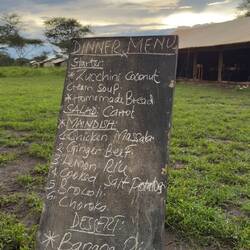 DINNER MENU
Starter
* Zucchini Coconut
Cream Soup
* Homemade Bread
SALAD Carrot
* MAINDISH:
1. Chicken Massala
2. Ginger Beef
3. Lemon Rice
4. Cooked
5. Brocoli
6. Choroko
DESSERT:
* Banana